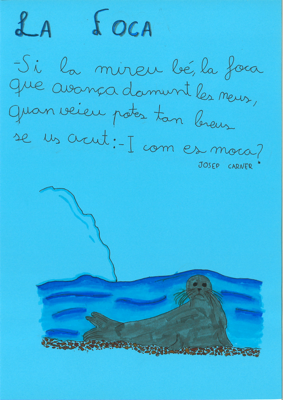 LA FOCA
-Si la mireu bé, la foca
que avança damunt les neus,
quan veieu potes tan breus
se us acut:-I com es moca?
JOSEP CARNER